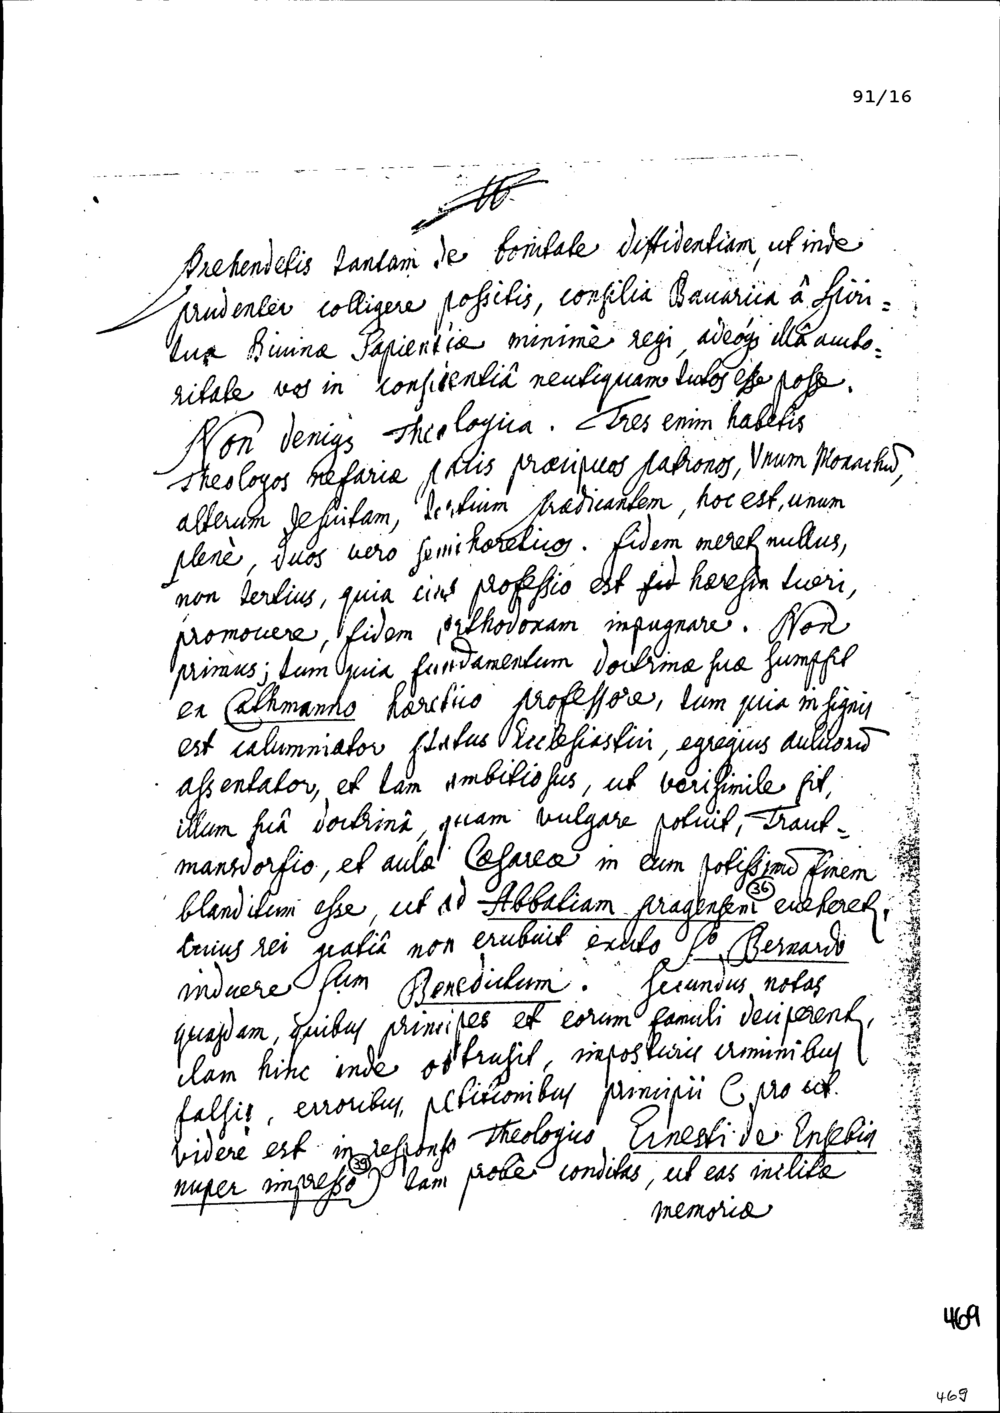 91/16
16.
prehendetis tantam de bonitate diffidentiam, ut inde
prudenter colligere possitis, consilia Bauarica â Spiri=
tua Diuinæ Sapientiæ minimè regi, adeoq; illâ aucto=
ritate vos in conscientiâ neutiquam tutos esse posse.
Non deniqs Theologica. Tres enim habetis
Theologos nefariæ pacis præcipuos patronos, Vnum Monachũ,
alterum Jesuitam, tertium Prædicantem, hoc est, unum
plenè, duos vero semihæreticos. fidem meret nullus,
non tertius, quia eius professio est hæresin tueri,
promouere, fidem orthodoxam impugnare. Non
primus; tum quia fundamentum doctrinæ suæ sumpsit
ex Cathmanno hæretico professore, tum quia insignis
est calumniator status Ecclesiastici, egregius aulicorũ
assentator, et tam ambitiosus, ut verisimile sit,
illum suâ doctrinâ, quam vulgare potuit, Traut=
mansdorfio, et aulæ Cæsareæ in eum potissimũ finem
blanditum esse, ut ad Abbatiam pragensem (36) eueheret,
cuius rei gratiâ non erubuit exuto S.º Bernardo
induere Sum Benedictum. Secundus notas
quasdam, quibus principes et eorum famuli deciperent,
clam hinc inde obtrusit, imposturis criminibus
falsis, erroribus, petitionibus principii (pro ut
videre est in responso Theologico Ernesti de Eusebiis
nuper impresso (39)) tam probè conditas, ut eas inclitæ
memoriæ
469
469